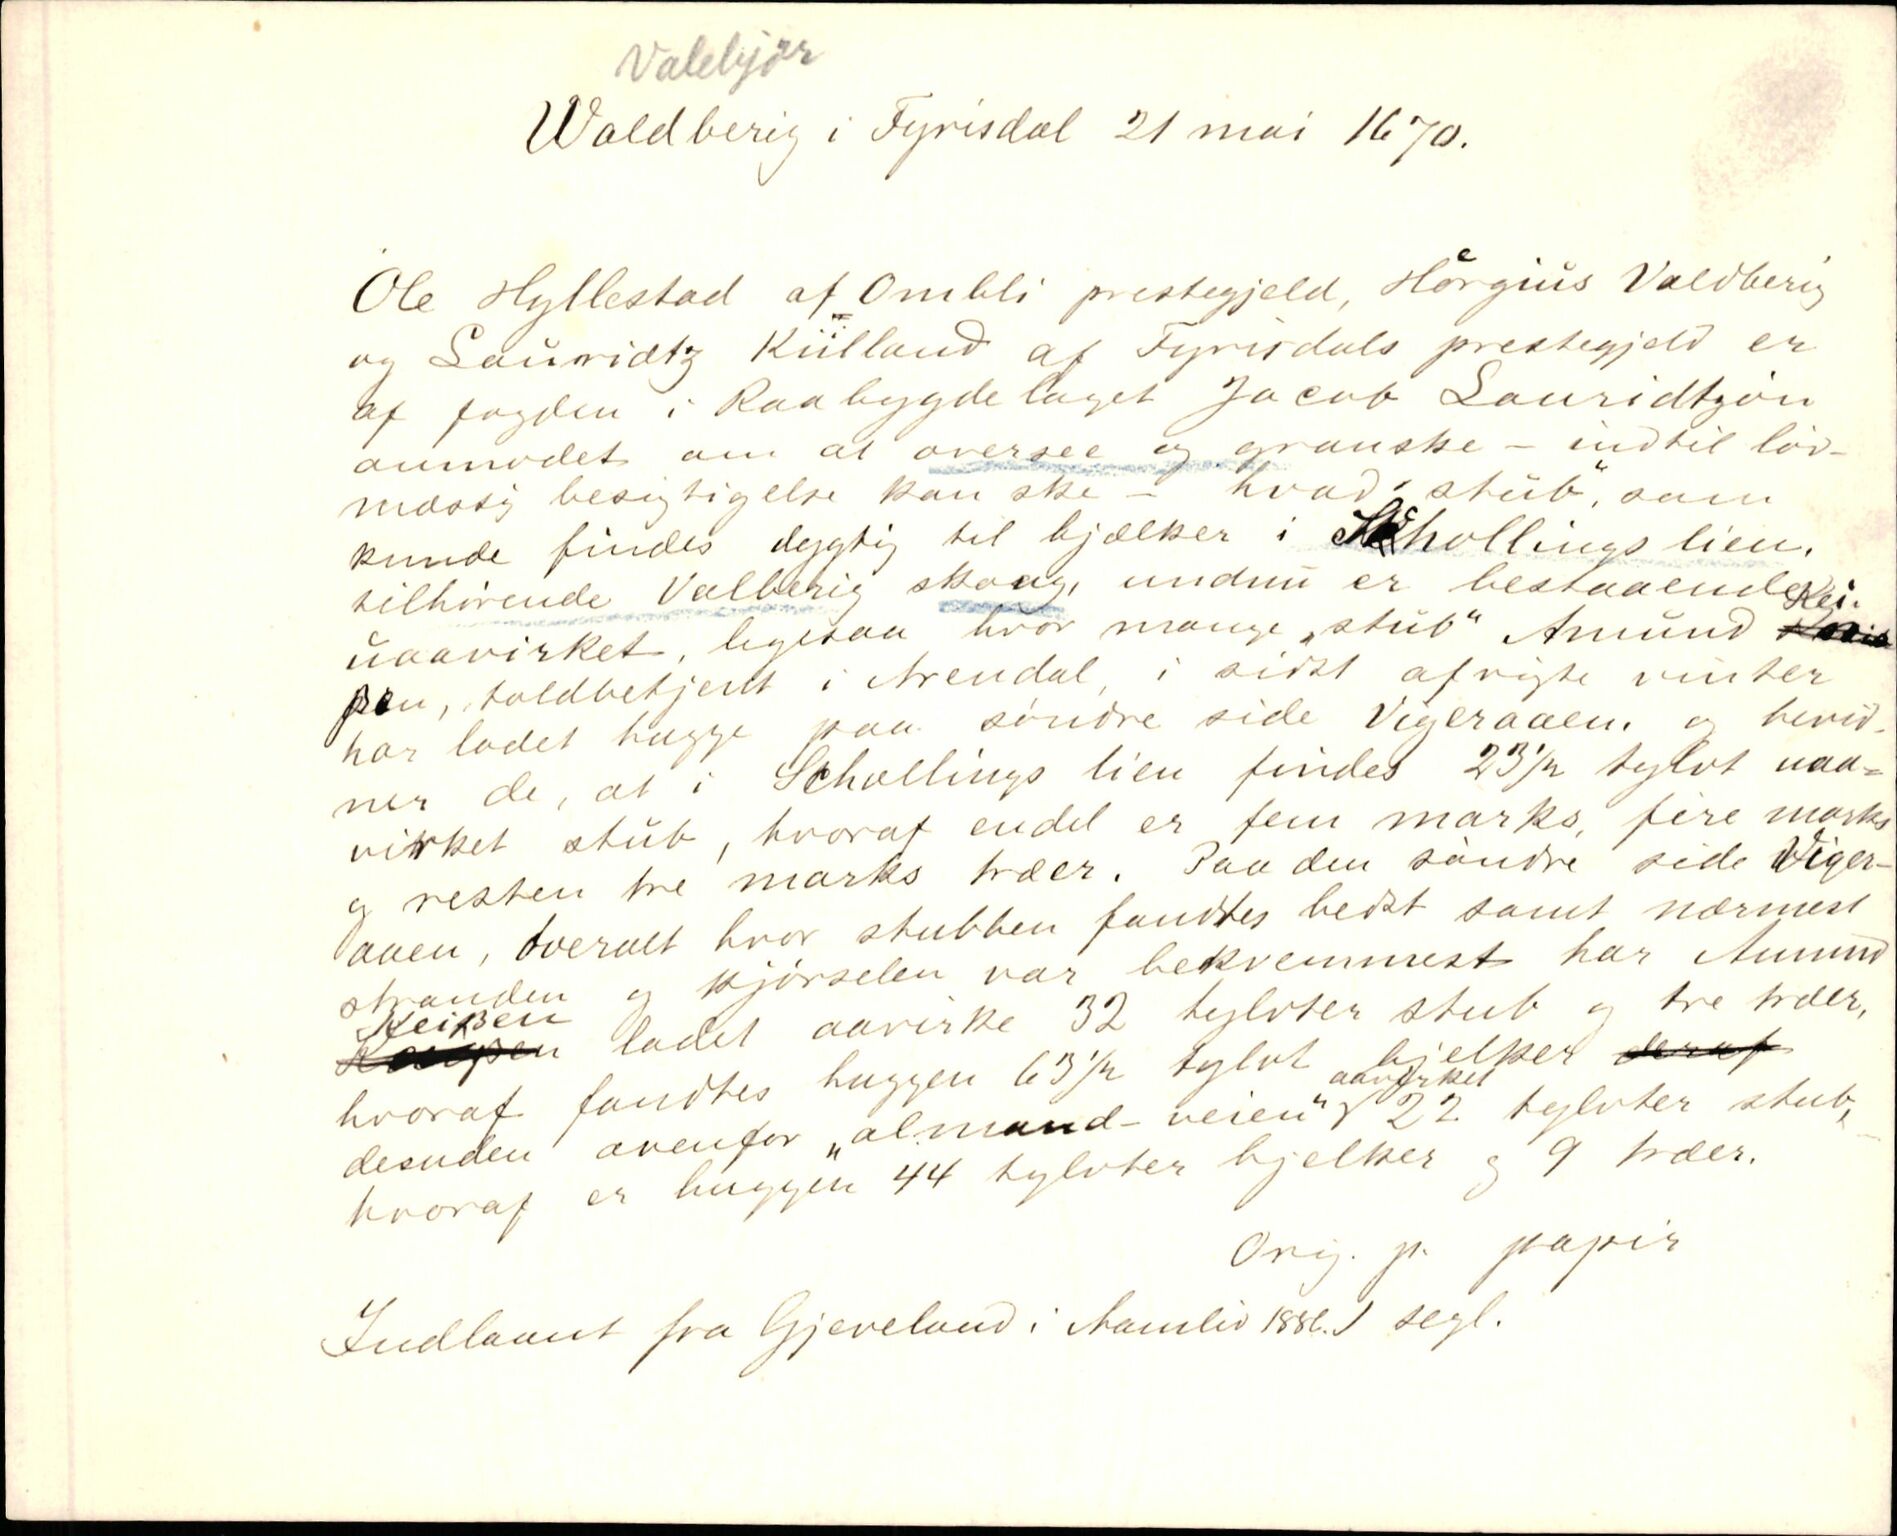 Valebjør
Waldberig i Fyrisdal 21 mai 1670.
Ole Hyllestad af Ombli prestegjeld, Hörgius Valdberig
og Lauridtz Kiilland af Fyrisdals prestegjeld er
af fogden i Raabygdelaget Jacob Lauridtzön
anmodet om at oversee og granske - indtil lov-
mæssig besigtigelse kan ske - hvad "stub", som
kunde findes dygtig til bjælker i Schollings lien,
tilhörende Valberig skoug, undnu er bestaaende
uaavirket, ligesaa hvor mange "stub" Amund Kei-
pen, toldbetjent i Arendal, i sidst afvigte vinter
har ladet hugge paa söndre side Vigeraaen. og bevid-
ner de, at i Schollings lien findes 23 1/2 tylvt uaa-
virket stub, hvoraf endel er fem marks, fire marks
og resten tre marks træer. Paa den söndre side Viger-
aaen, overalt hvor stubben fandtes bedst samt nærmest
stranden og kjörselen var bekvemmest har Amund
Keipen ladet aavirke 32 tylvter stub og tre træer,
hvoraf fandtes huggen 63 1/2 tylvt bjelker deraf
desuden ovenfor "almand-veien" aavirket 22 tylvter stub,
hvoraf er huggen 44 tylvter bjelker og 9 træer.
Orig. p. papir
Indlaant fra Gjeveland i Aamlid 1886. 1 segl.